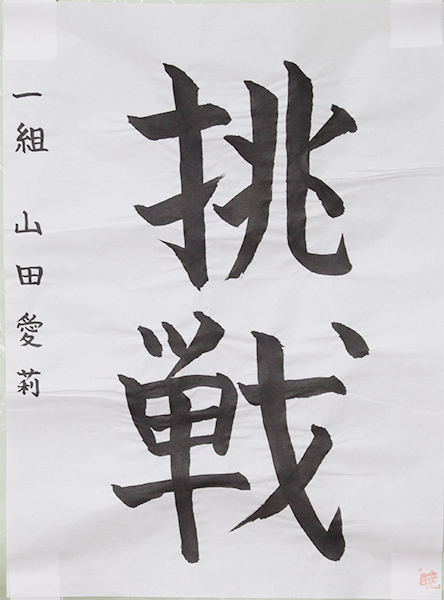 挑戦
一組 山田愛莉
暁